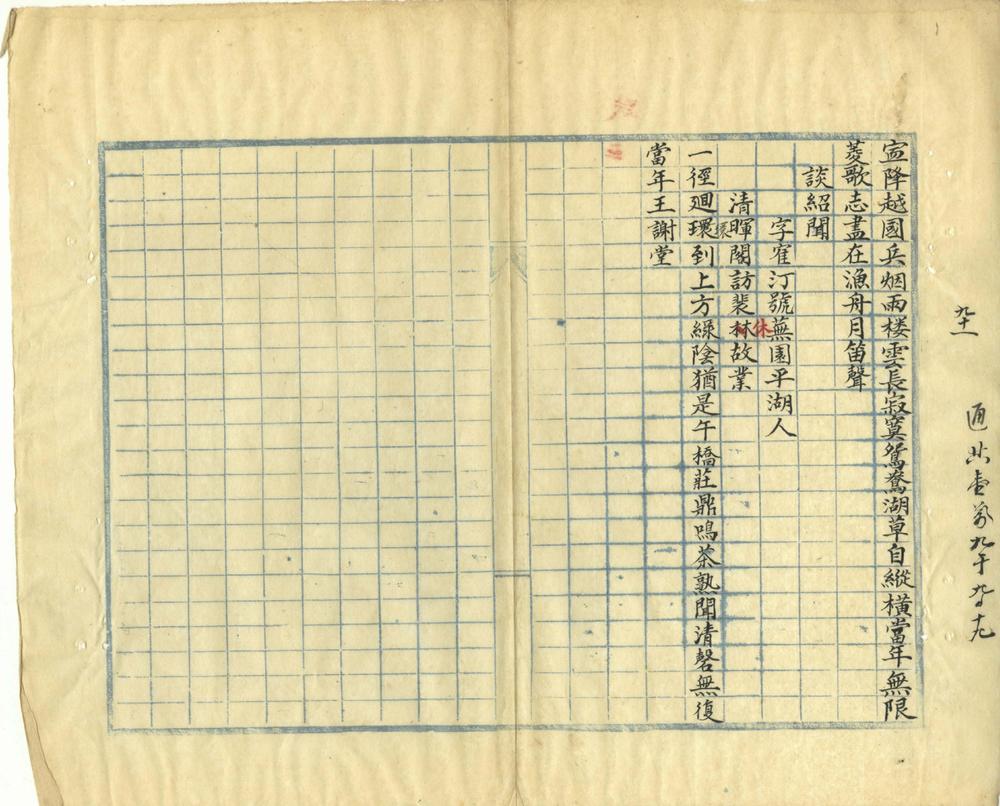 九十一
通共壹萬九千九百十九
寍降越國兵烟雨楼雲長寂寞鴛鴦湖草自縱橫當年無限
菱歌志盡在漁舟月笛聲
談紹聞
字寉汀號蕪園平湖人
休
清暉閣訪裴林故業
環
一徑廻環到上方綠陰猶是午橋莊鼎鳴茶熟聞清磬無復
當年王謝堂